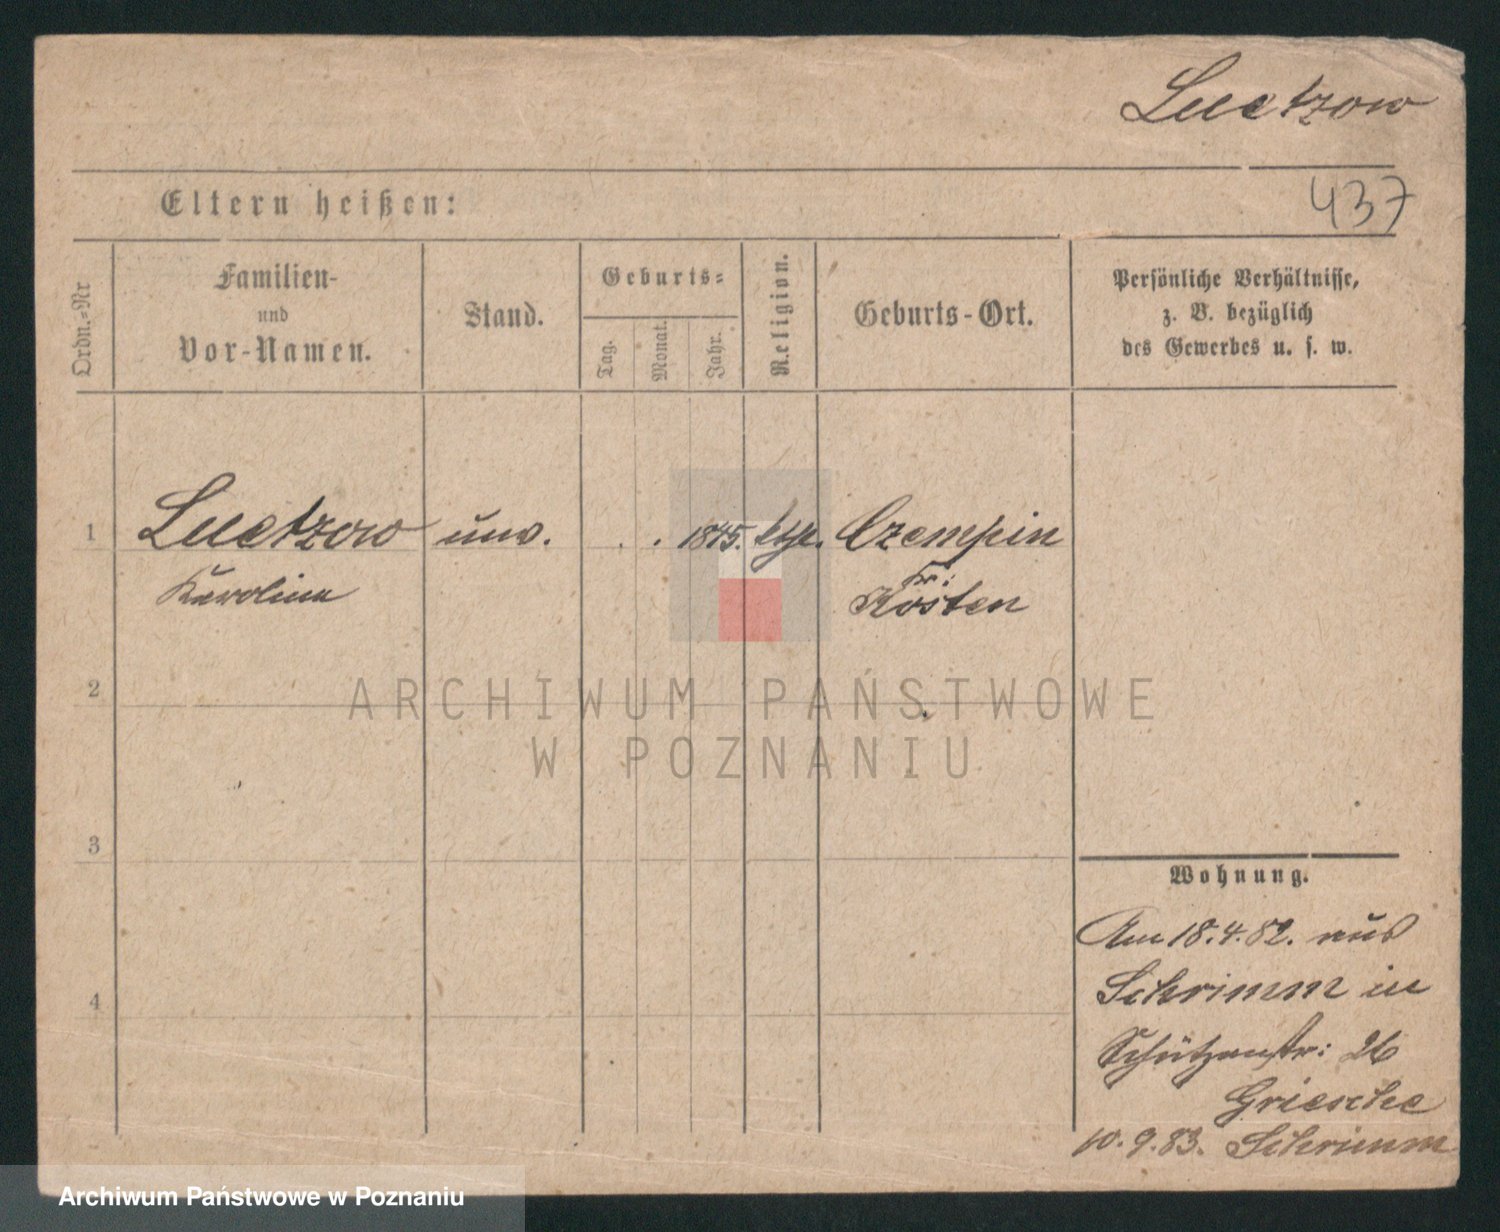 Luetzow
437
Eltern heißen:
Ordn.-Nr
Familien-
und
Vor-Namen.
Stand.
Geburts-
Tag.
Monat.
Jahr.
Religion.
Geburts-Ort.
Persönliche Verhältnisse,
z. B. bezüglich
des Gewerbes u. s. w.
1 Luetzow unv. . . 1845. ktpl. Czempin
Karolina Kr:
Kosten
2
ARCHIWUM PAŃSTWOWE
W POZNANIU
3
Wohnung.
Am 18.4.82. aus
Schrimm in
4
Schützenstr: 26
Griesche
10.9.83. Schrimm
Archiwum Państwowe w Poznaniu